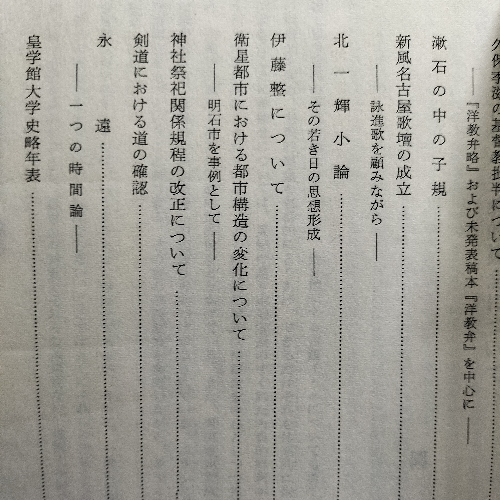 の基督教批判について
――『洋教弁略』および未発表稿本『洋教弁』を中心に――
漱石の中の子規
新風名古屋歌壇の成立
――詠進歌を顧みながら――
北一輝小論
――その若き日の思想形成――
伊藤整について
衛星都市における都市構造の変化について
――明石市を事例として――
神社祭祀関係規程の改正について
剣道における道の確認
永遠
――一つの時間論――
皇学館大学史略年表